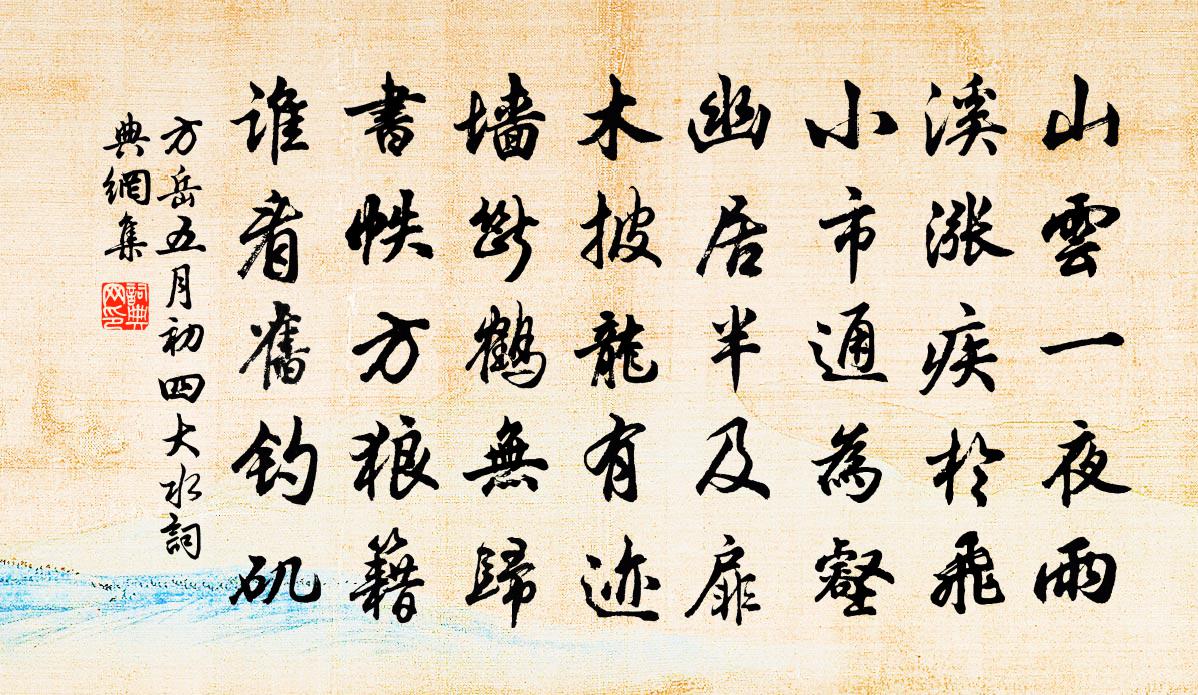 山雲一夜雨
溪漲疾於飛
小市通為壑
幽居半及扉
木披龍有迹
墻斷鶴無歸
書帙方狼籍
誰看舊釣矶
方岳五月初四大水詞
典網集
詞典
网印